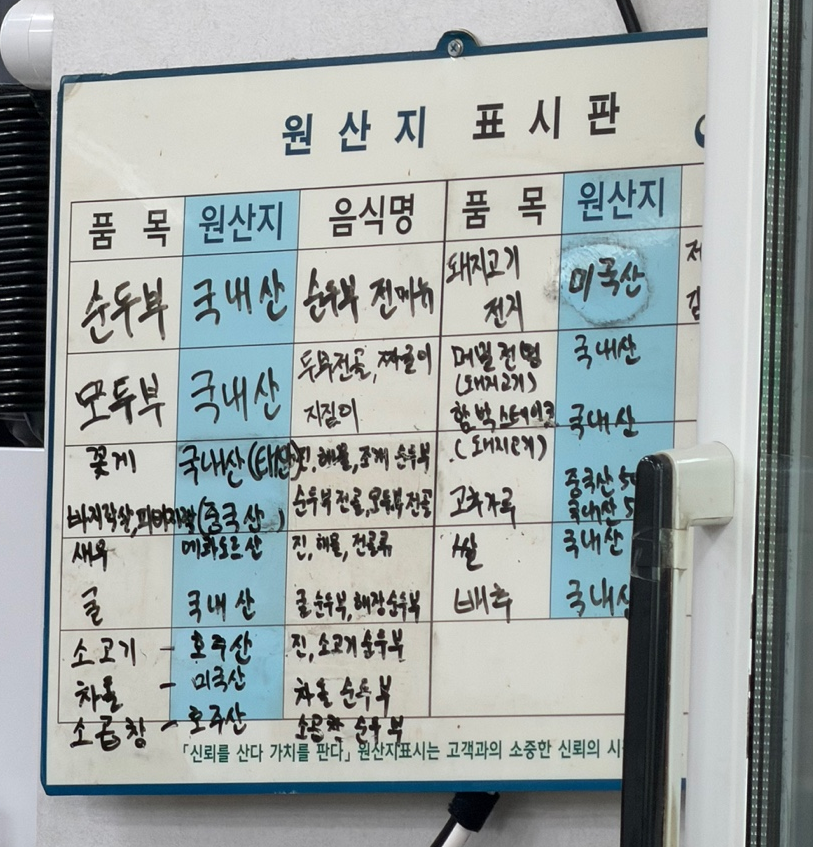 원산지 표시판
품목 원산지 음식명 품목 원산지
순두부 국내산 순두부 전메뉴 돼지고기 전지 미국산
모두부 국내산 두부전골, 짜글이 지짐이
메밀전병 (돼지고기) 국내산
함박스테이크 (돼지고기) 국내산
꽃게 국내산 진, 해물, 조개 순두부
바지락살, (중국산) 순두부전골, 모두부전골
고추가루 중국산 국내산
새우 에콰도르산 진, 해물, 전골류 쌀 국내산
굴 국내산 굴순두부, 해장순두부 배추 국내산
소고기 - 호주산 진, 소고기순두부
차돌 - 미국산 차돌 순두부
소곱창 - 호주산 소곱창 순두부
「신뢰를 산다 가치를 판다」 원산지표시는 고객과의 소중한 신뢰의